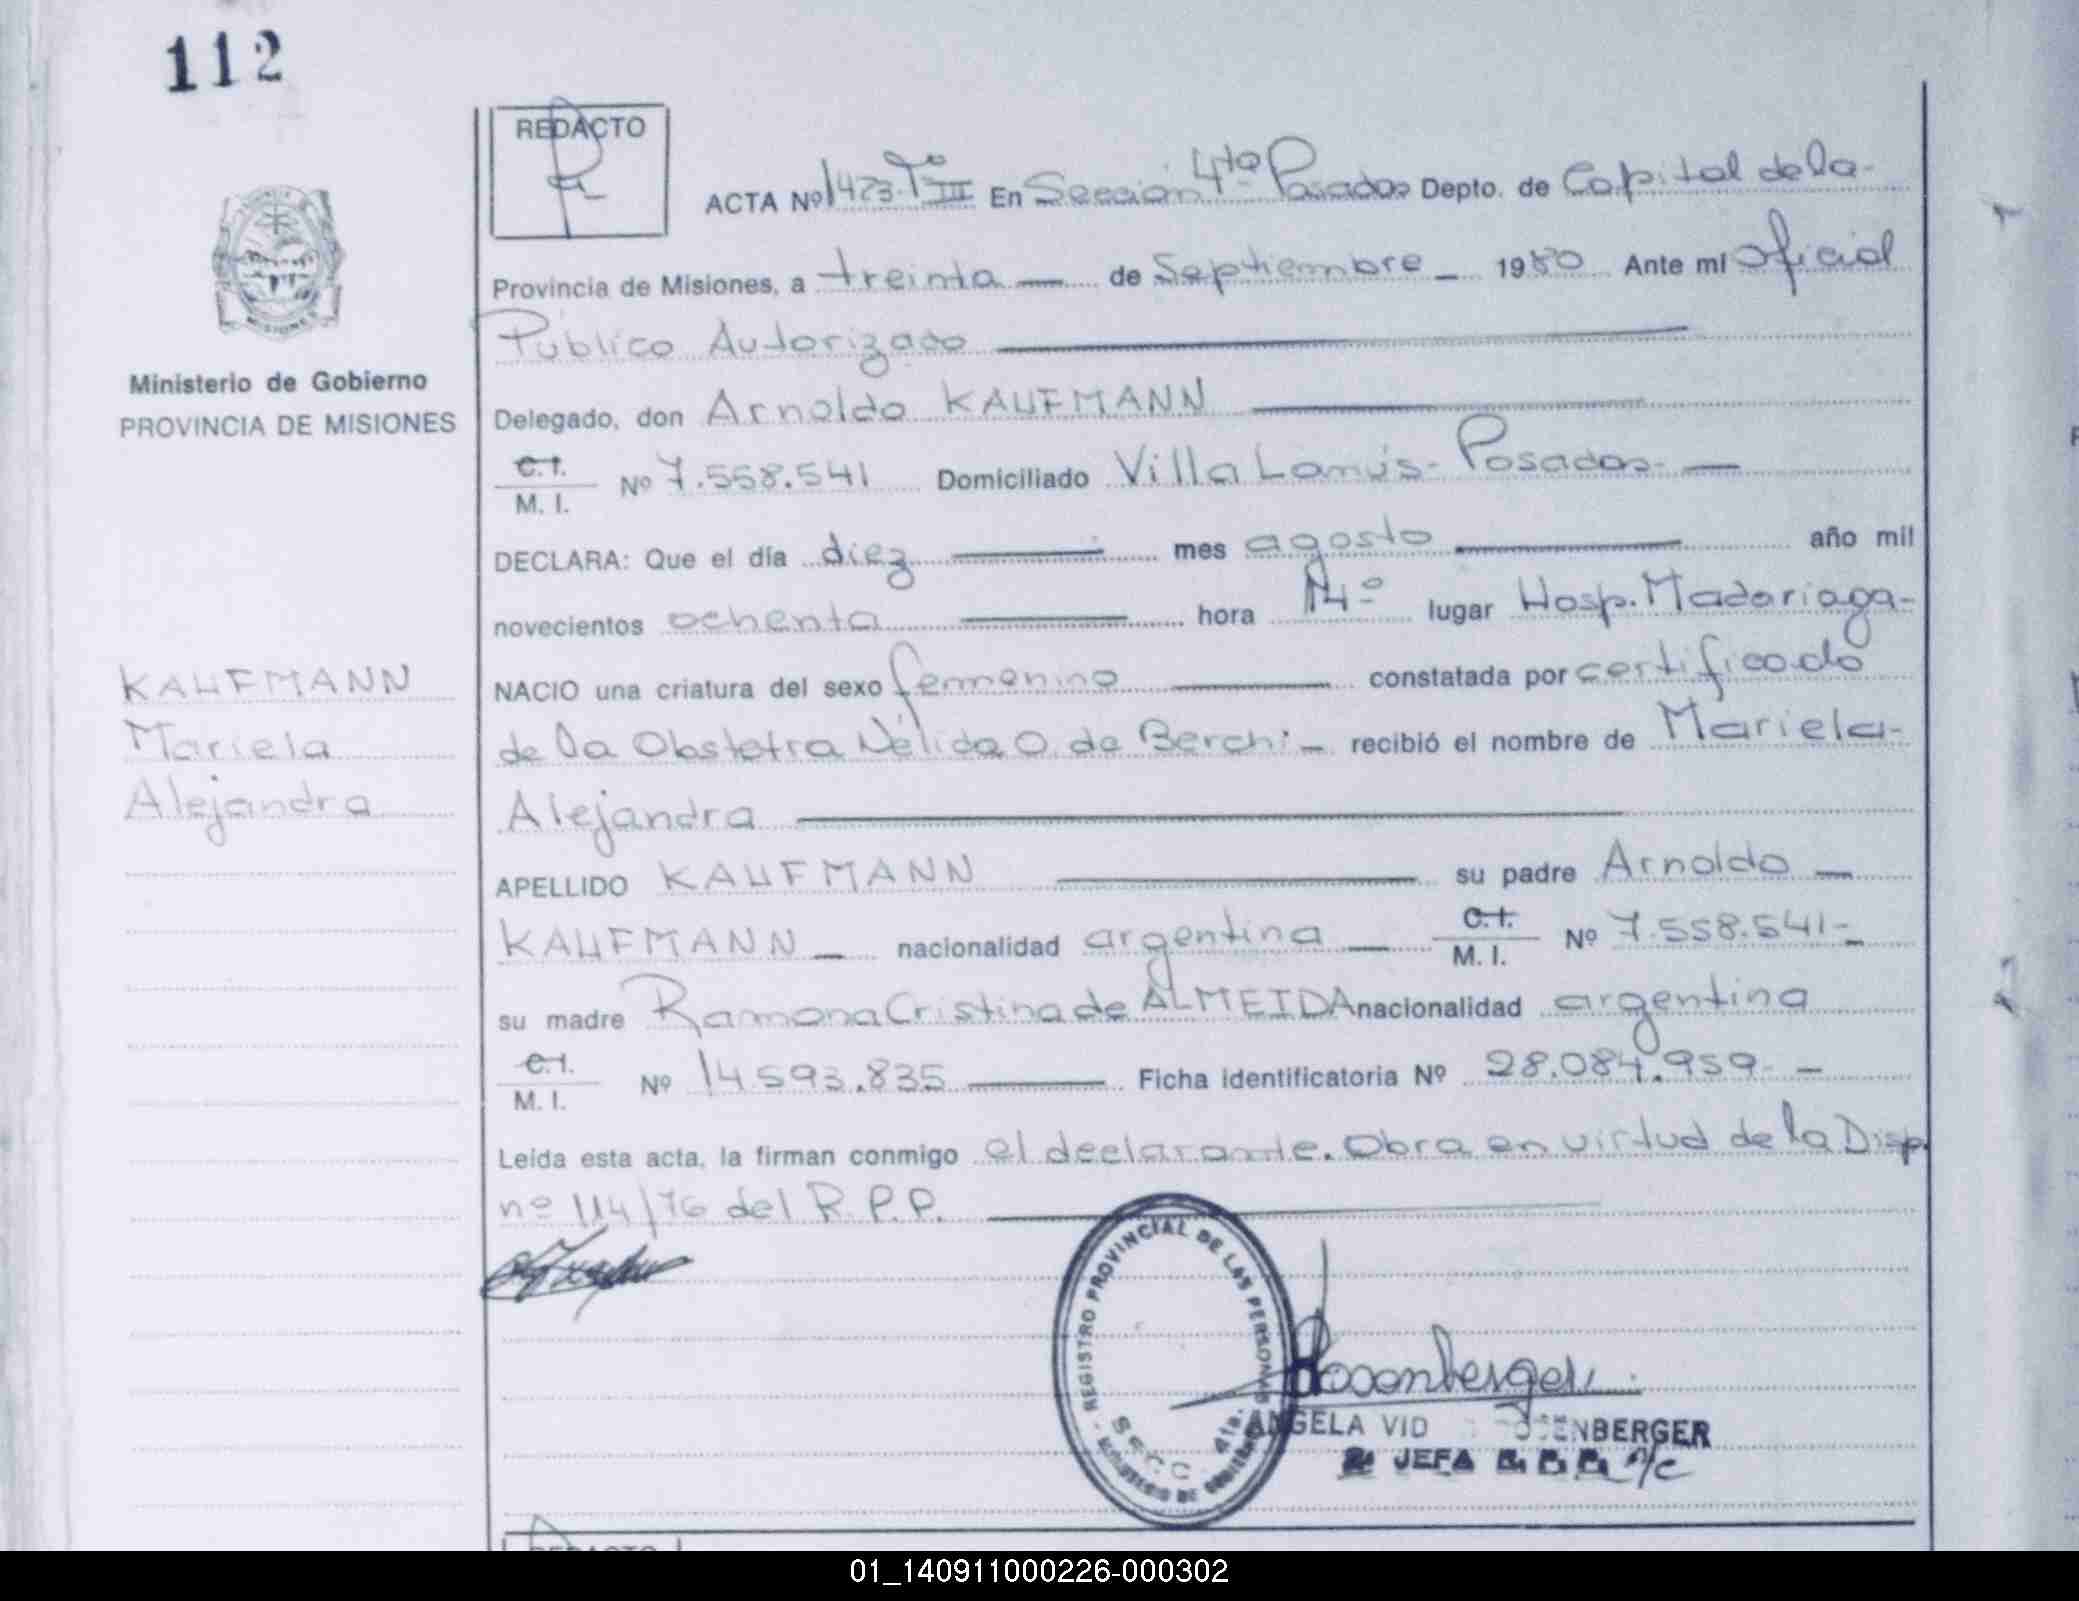 112
REDACTO
ACTA Nº 1423 Tº III En Sección 4ta Posadas Depto. de Capital de la-
Provincia de Misiones, a treinta — de Septiembre — 1980 Ante mí Oficial
Público Autorizado
Ministerio de Gobierno
PROVINCIA DE MISIONES
MISIONES
Delegado, don Arnoldo KAUFMANN
C.I.
M. I. Nº 7.558.541 Domiciliado Villa Lanús- Posadas- —
DECLARA: Que el día diez — mes agosto — año mil
novecientos ochenta — hora 14º lugar Hosp. Madariaga-
KAUFMANN
Mariela
Alejandra
NACIO una criatura del sexo femenino — constatada por certificado
de la Obstetra Nélida O. de Berchi — recibió el nombre de Mariela-
Alejandra
APELLIDO KAUFMANN — su padre Arnoldo —
KAUFMANN — nacionalidad argentina — C.I.
M. I. Nº 7.558.541- —
su madre Ramona Cristina de ALMEIDA nacionalidad argentina
C.I.
M. I. Nº 14.593.835 — Ficha identificatoria Nº 28.084.959- —
Leida esta acta, la firman conmigo el declarante. Obra en virtud de la Disp.
nº 114/76 del R.P.P.
REGISTRO PROVINCIAL DE LAS PERSONAS
MINISTERIO DE GOBIERNO
4ta.
Rosenberger
ANGELA VID ENBERGER
JEFA a/c
REDACTO
01_140911000226-000302